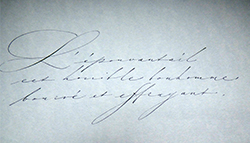 L'épouvantail
est horrible bonhomme
bourré et effrayant.